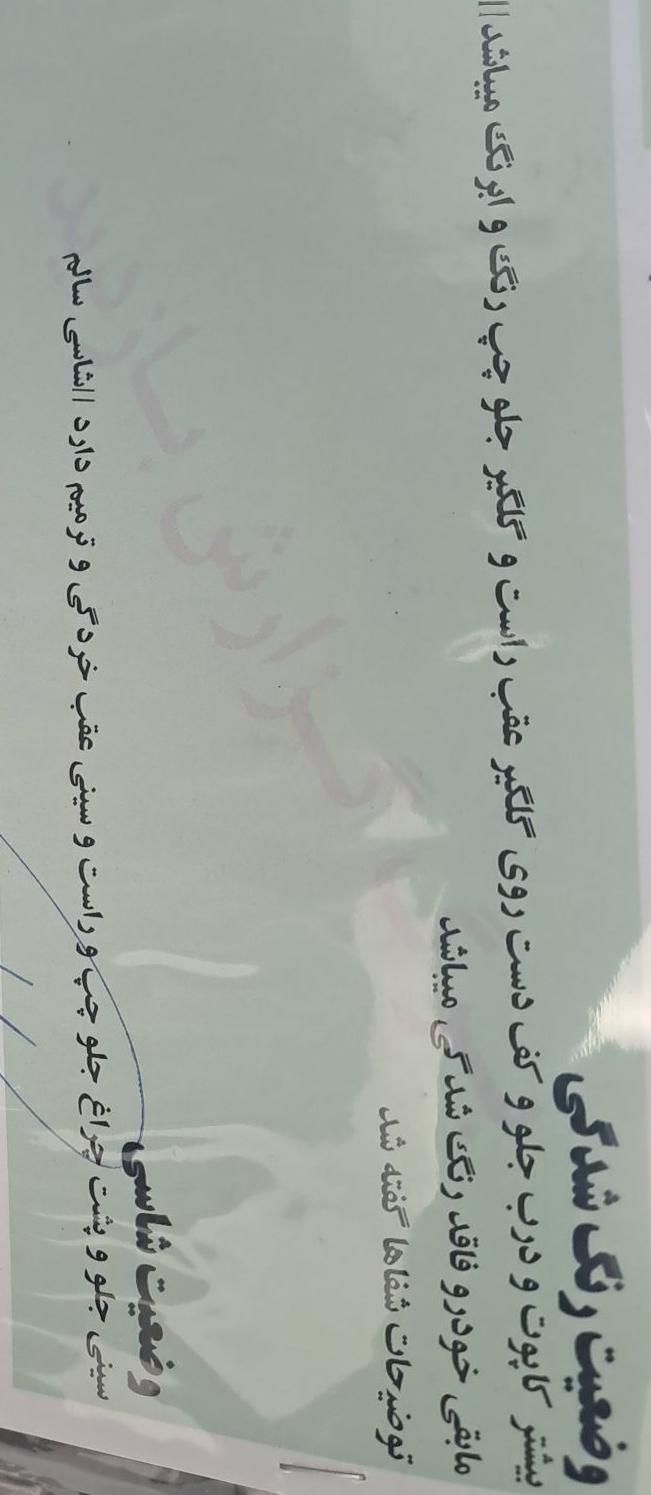 وضعیت رنگ شدگی
بیشتر کاپوت و درب جلو و کف دست روی گلگیر عقب راست و گلگیر جلو چپ رنگ و ابرنگ میباشد ||
مابقی خودرو فاقد رنگ شدگی میباشد
توضیحات شفاها گفته شد
وضعیت شاسی
سینی جلو و پشت چراغ جلو چپ و راست و سینی عقب خردگی و ترمیم دارد ||شاسی سالم
گزارش بازدید